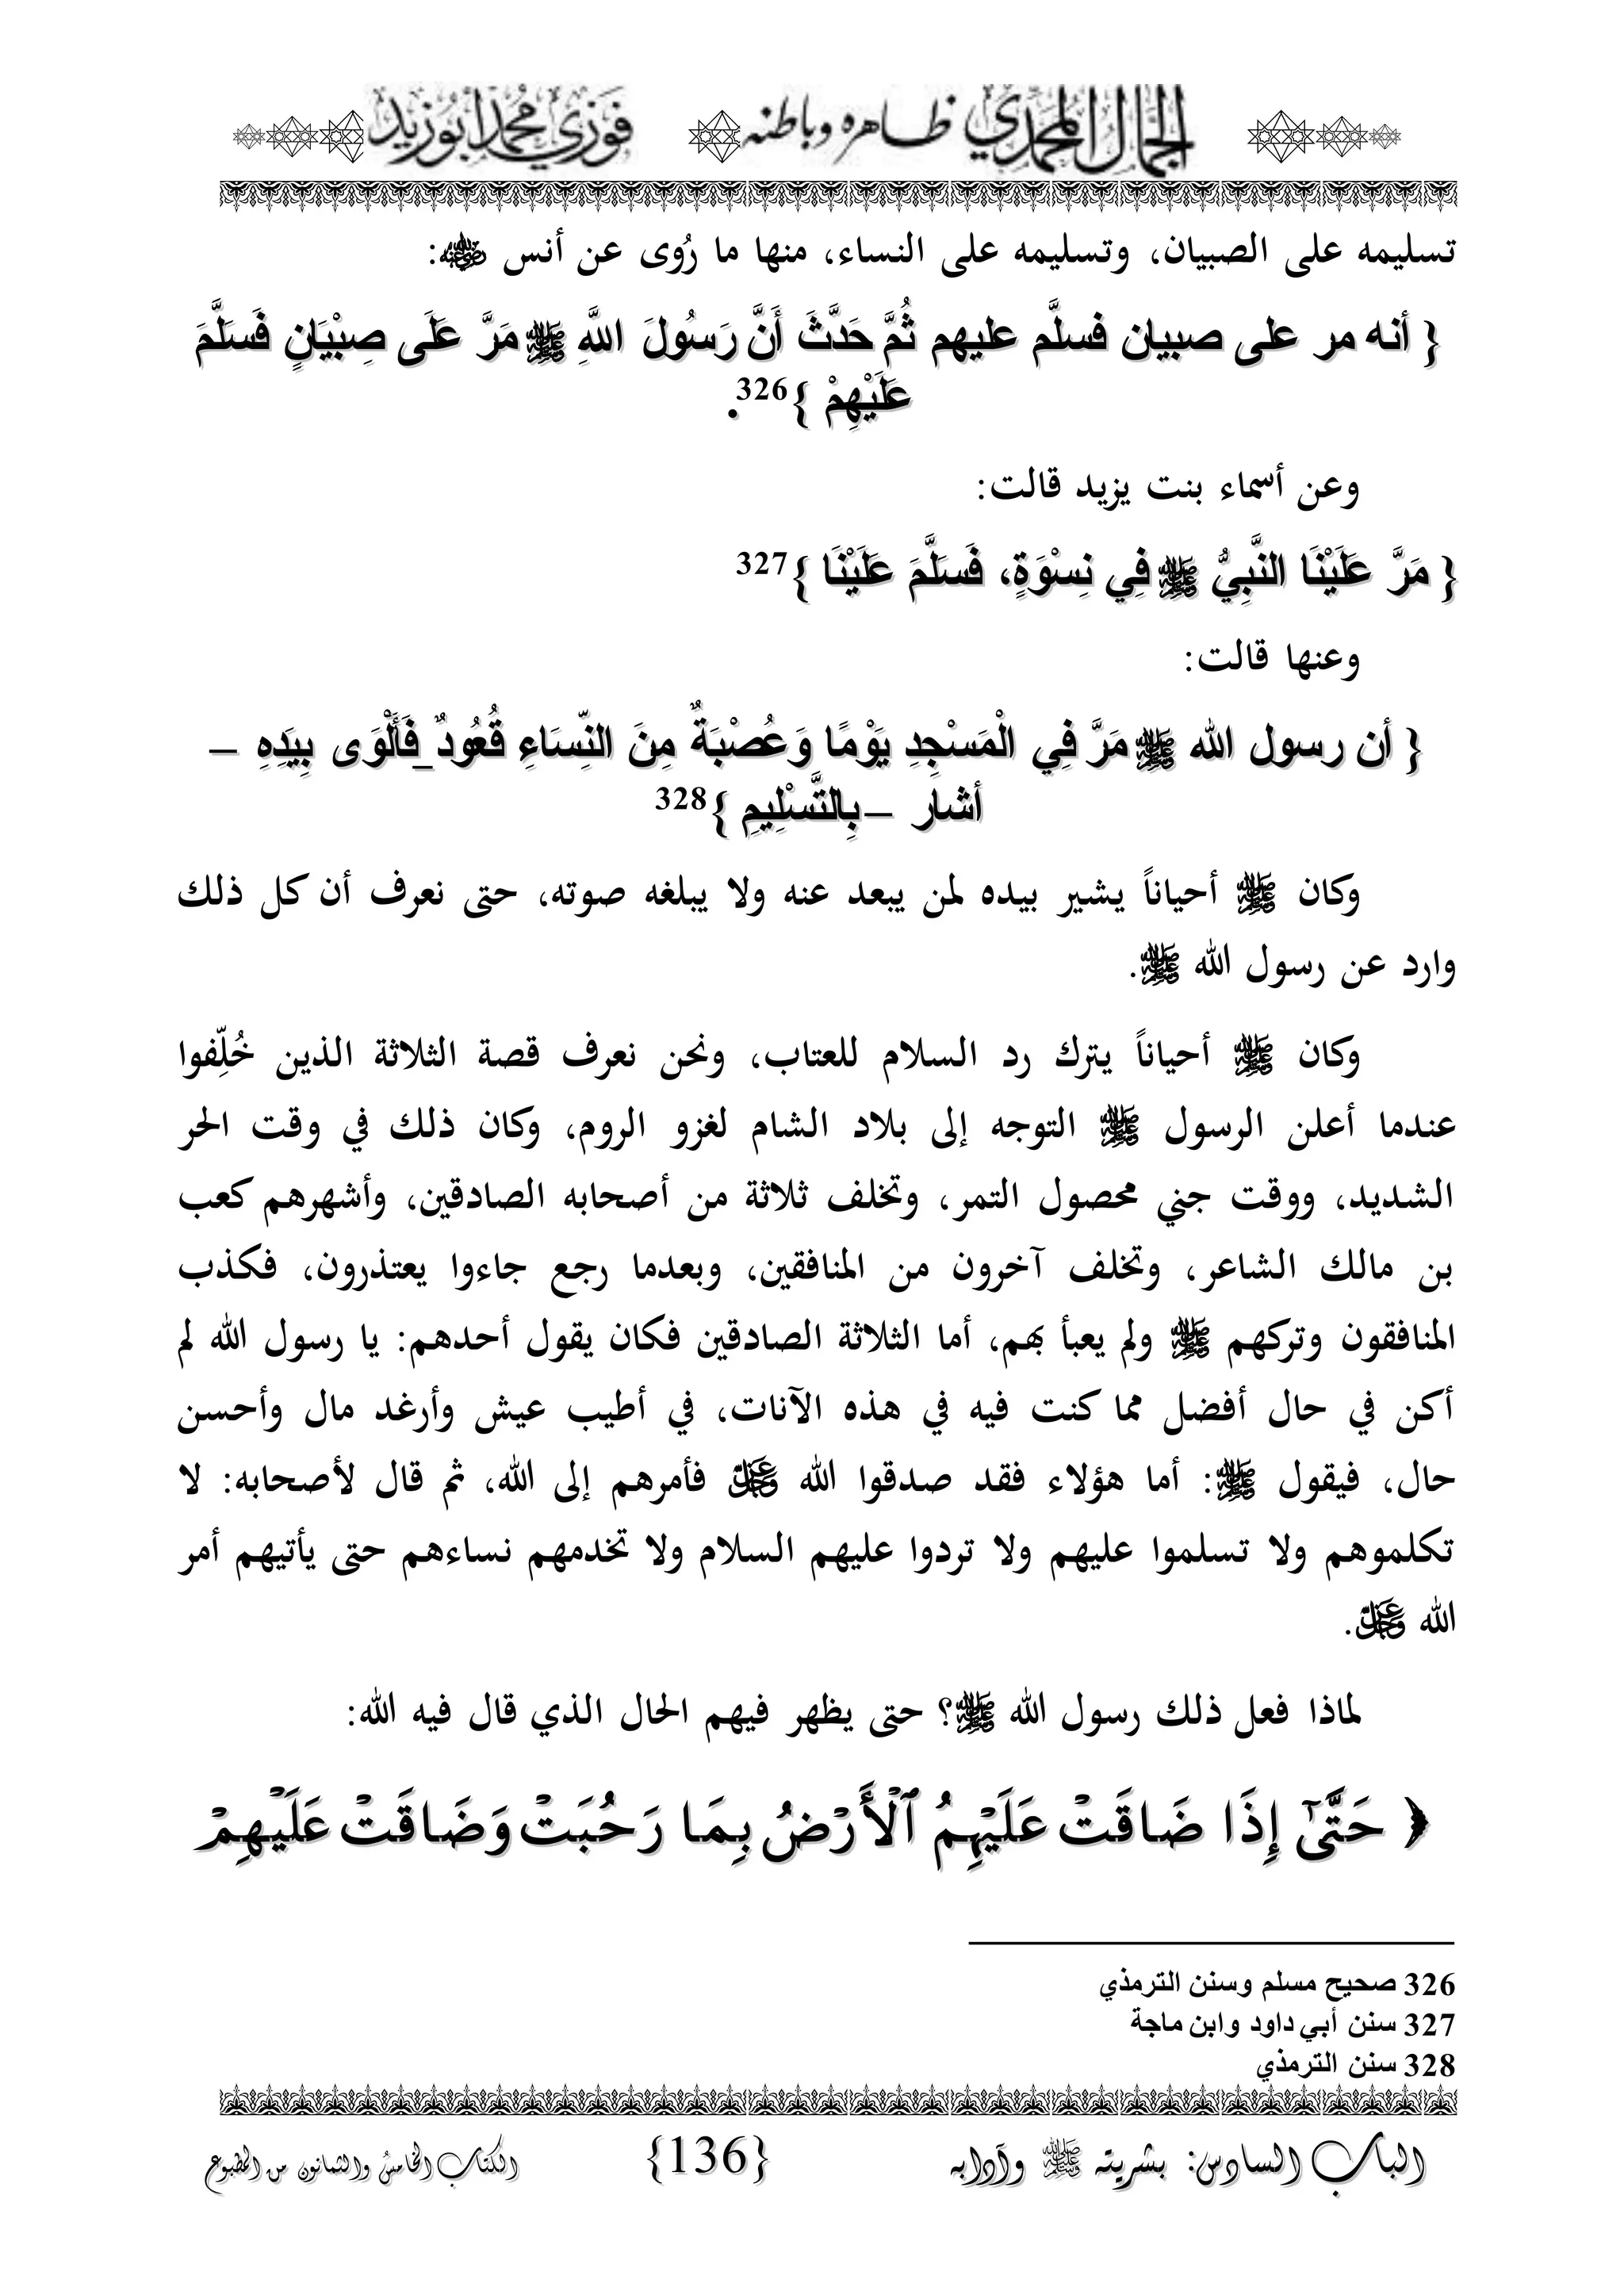 الجمال المحمدي ظاهره وباطنه فوزي محمد أبوزيد
تسليمه على الصبيان، وتسليمه على النساء، منها ما رُوى عن أنس رضي الله عنه:
{ أنه مر على صبيان فسلَّم عليهم ثُمَّ حَدَّثَ أَنَّ رَسُولَ اللَّهِ ﷺ مَرَّ عَلَى صِبْيَانٍ فَسَلَّمَ
عَلَيْهِمْ }326.
وعن أسماء بنت يزيد قالت:
{ مَرَّ عَلَيْنَا النَّبِيُّ ﷺ فِي نِسْوَةٍ، فَسَلَّمَ عَلَيْنَا }327
وعنها قالت:
{ أن رسول الله ﷺ مَرَّ فِي الْمَسْجِدِ يَوْمًا وَعُصْبَةٌ مِنَ النِّسَاءِ قُعُودٌ_فَأَلْوَى بِيَدِهِ –
أشار – بِالتَّسْلِيمِ }328
وكان ﷺ أحياناً يشير بيده لمن يبعد عنه ولا يبلغه صوته، حتى نعرف أن كل ذلك
وارد عن رسول الله ﷺ.
وكان ﷺ أحياناً يترك رد السلام للعتاب، ونحن نعرف قصة الثلاثة الذين خُلِّفوا
عندما أعلن الرسول ﷺ التوجه إلى بلاد الشام لغزو الروم، وكان ذلك في وقت الحر
الشديد، ووقت جني محصول التمر، وتخلف ثلاثة من أصحابه الصادقين، وأشهرهم كعب
بن مالك الشاعر، وتخلف آخرون من المنافقين، وبعدما رجع جاءوا يعتذرون، فكذب
المنافقون وتركهم ﷺ ولم يعبأ بهم، أما الثلاثة الصادقين فكان يقول أحدهم: يا رسول الله لم
أكن في حال أفضل مما كنت فيه في هذه الآنات، في أطيب عيش وأرغد مال وأحسن
حال، فيقول ﷺ: أما هؤلاء فقد صدقوا الله عز وجل فأمرهم إلى الله، ثم قال لأصحابه: لا
تكلموهم ولا تسلموا عليهم ولا تردوا عليهم السلام ولا تخدمهم نساءهم حتى يأتيهم أمر
الله عز وجل.
لماذا فعل ذلك رسول الله ﷺ؟ حتى يظهر فيهم الحال الذي قال فيه الله:
﴿ حَتَّىٰٓ إِذَا ضَاقَتْ عَلَيْهِمُ ٱلْأَرْضُ بِمَا رَحُبَتْ وَضَاقَتْ عَلَيْهِمْ
326 صحيح مسلم وسنن الترمذي
327 سنن أبي داود وابن ماجة
328 سنن الترمذي
الباب السادس: بشريته ﷺ وآدابه {136} الكتاب الخامس والثمانون من المطبوع